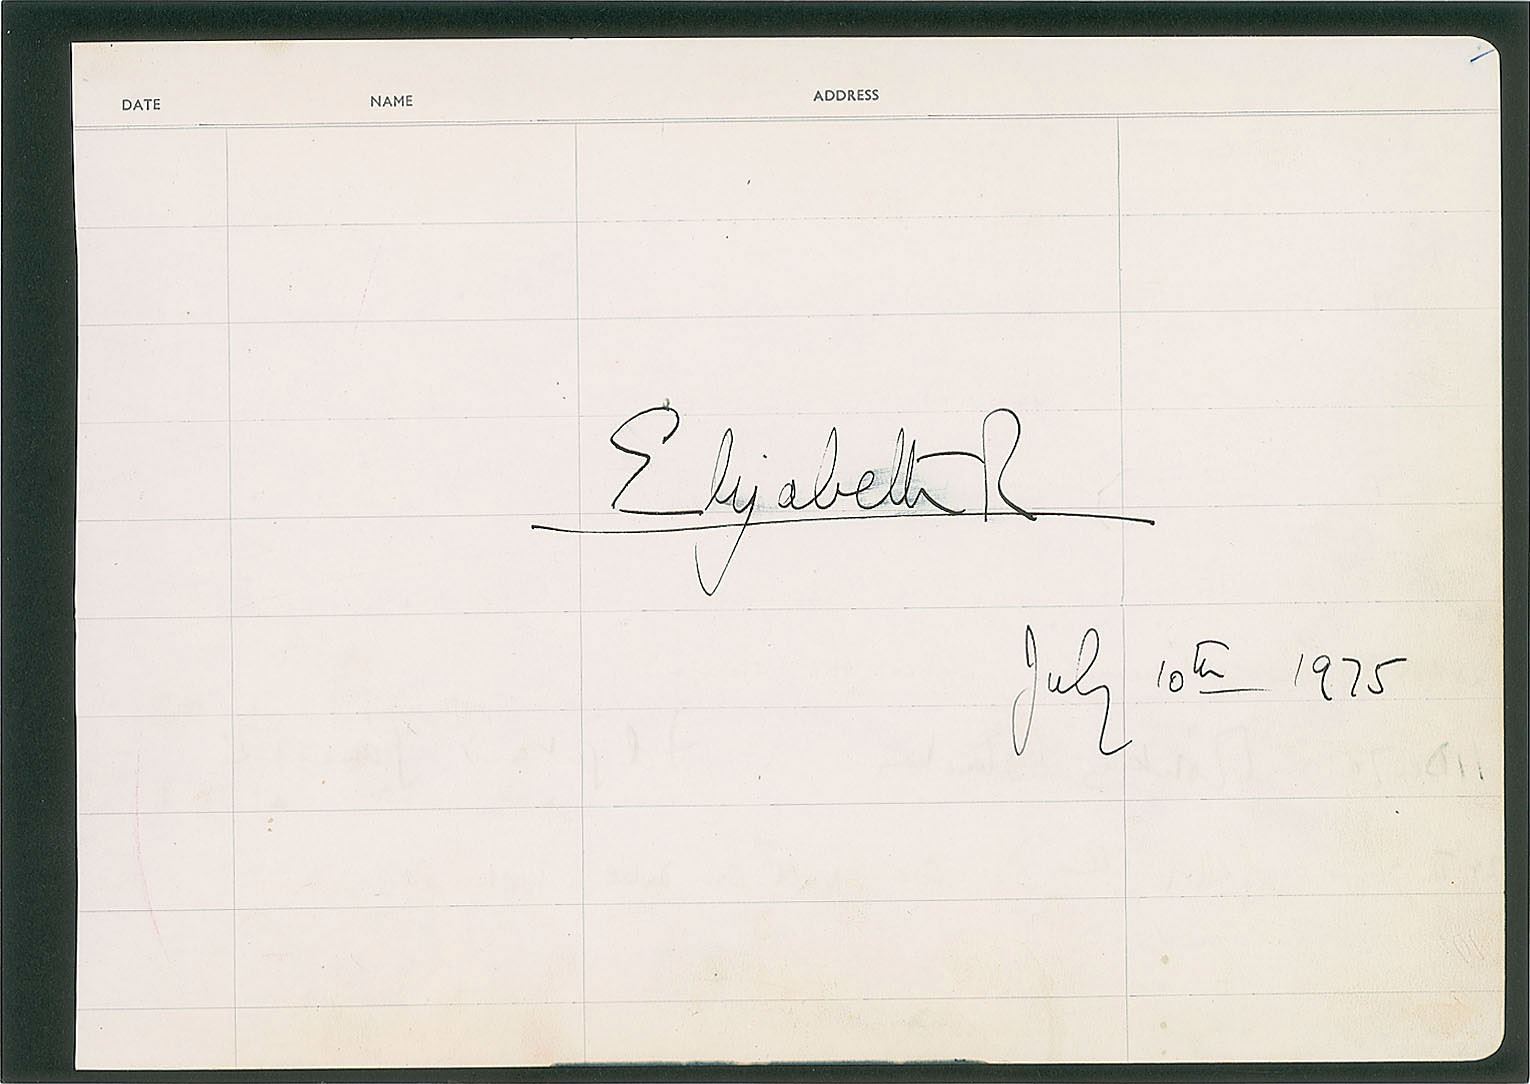 DATE NAME ADDRESS
Elizabeth R
July 10th 1975